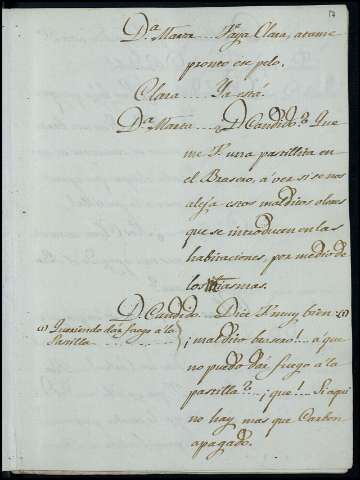 D.ª Marta Hija Clara, atame
pronto ese pelo.
Clara Ya está.
D.ª Marta ¿D. Candido? Que
me V. una pastillita en
el Brasero, á ver si se nos
aleja estos malditos olores
que se introducen en las
habitaciones, por medio de
los miasmas.
D. Candido. Dice V. muy bien (1)
(1) Queriendo dár fuego a la
Pastilla
¡maldito brasero! a que
no puedo dár fuego á la
pastilla? ¡que! Si aqui
no hay mas que Carbon
apagado.